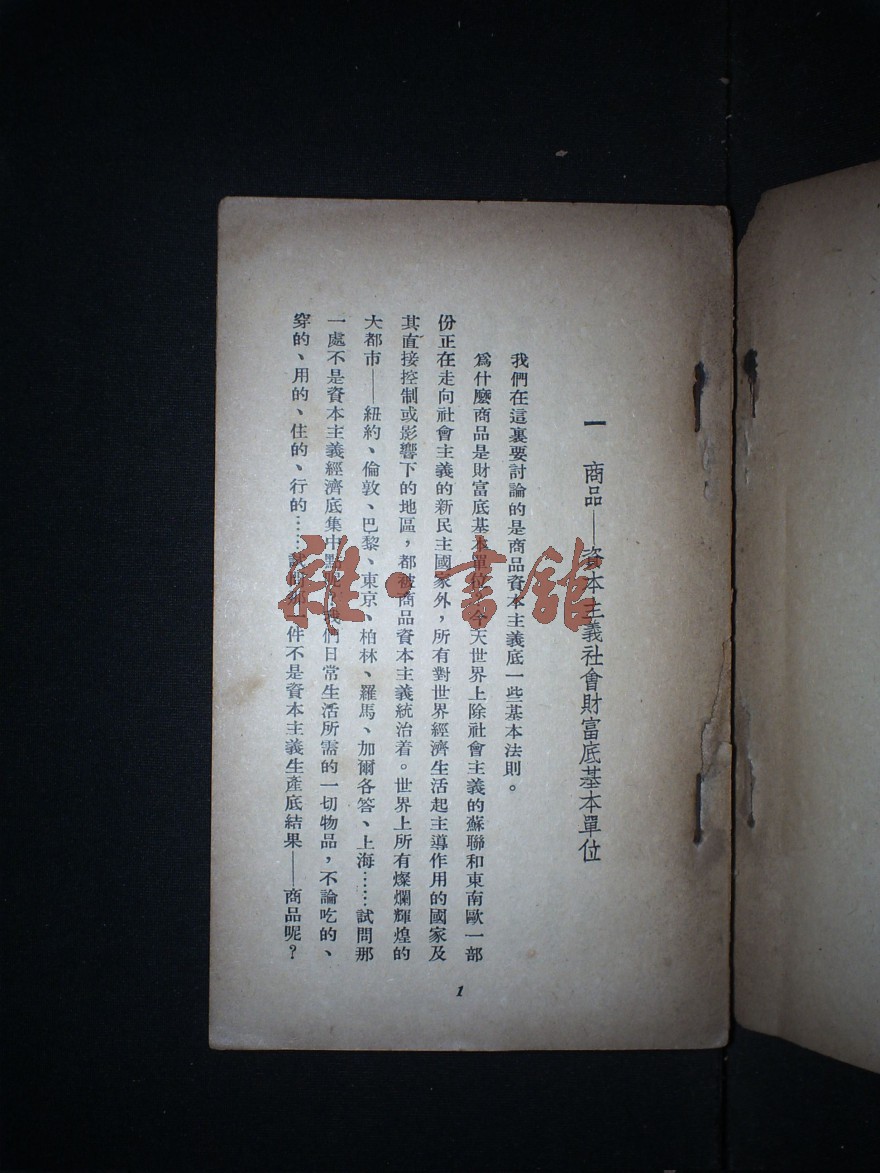 一 商品——資本主義社會財富底基本單位
我們在這裏要討論的是商品資本主義底一些基本法則。
爲什麼商品是財富底基本單位？今天世界上除社會主義的蘇聯和東南歐一部
份正在走向社會主義的新民主國家外，所有對世界經濟生活起主導作用的國家及
其直接控制或影響下的地區，都被商品資本主義統治着。世界上所有燦爛輝煌的
大都市——紐約、倫敦、巴黎、東京、柏林、羅馬、加爾各答、上海……試問那
一處不是資本主義經濟底集中點呢？我們日常生活所需的一切物品，不論吃的、
穿的、用的、住的、行的……試問那一件不是資本主義生產底結果——商品呢？
1
雜·書館